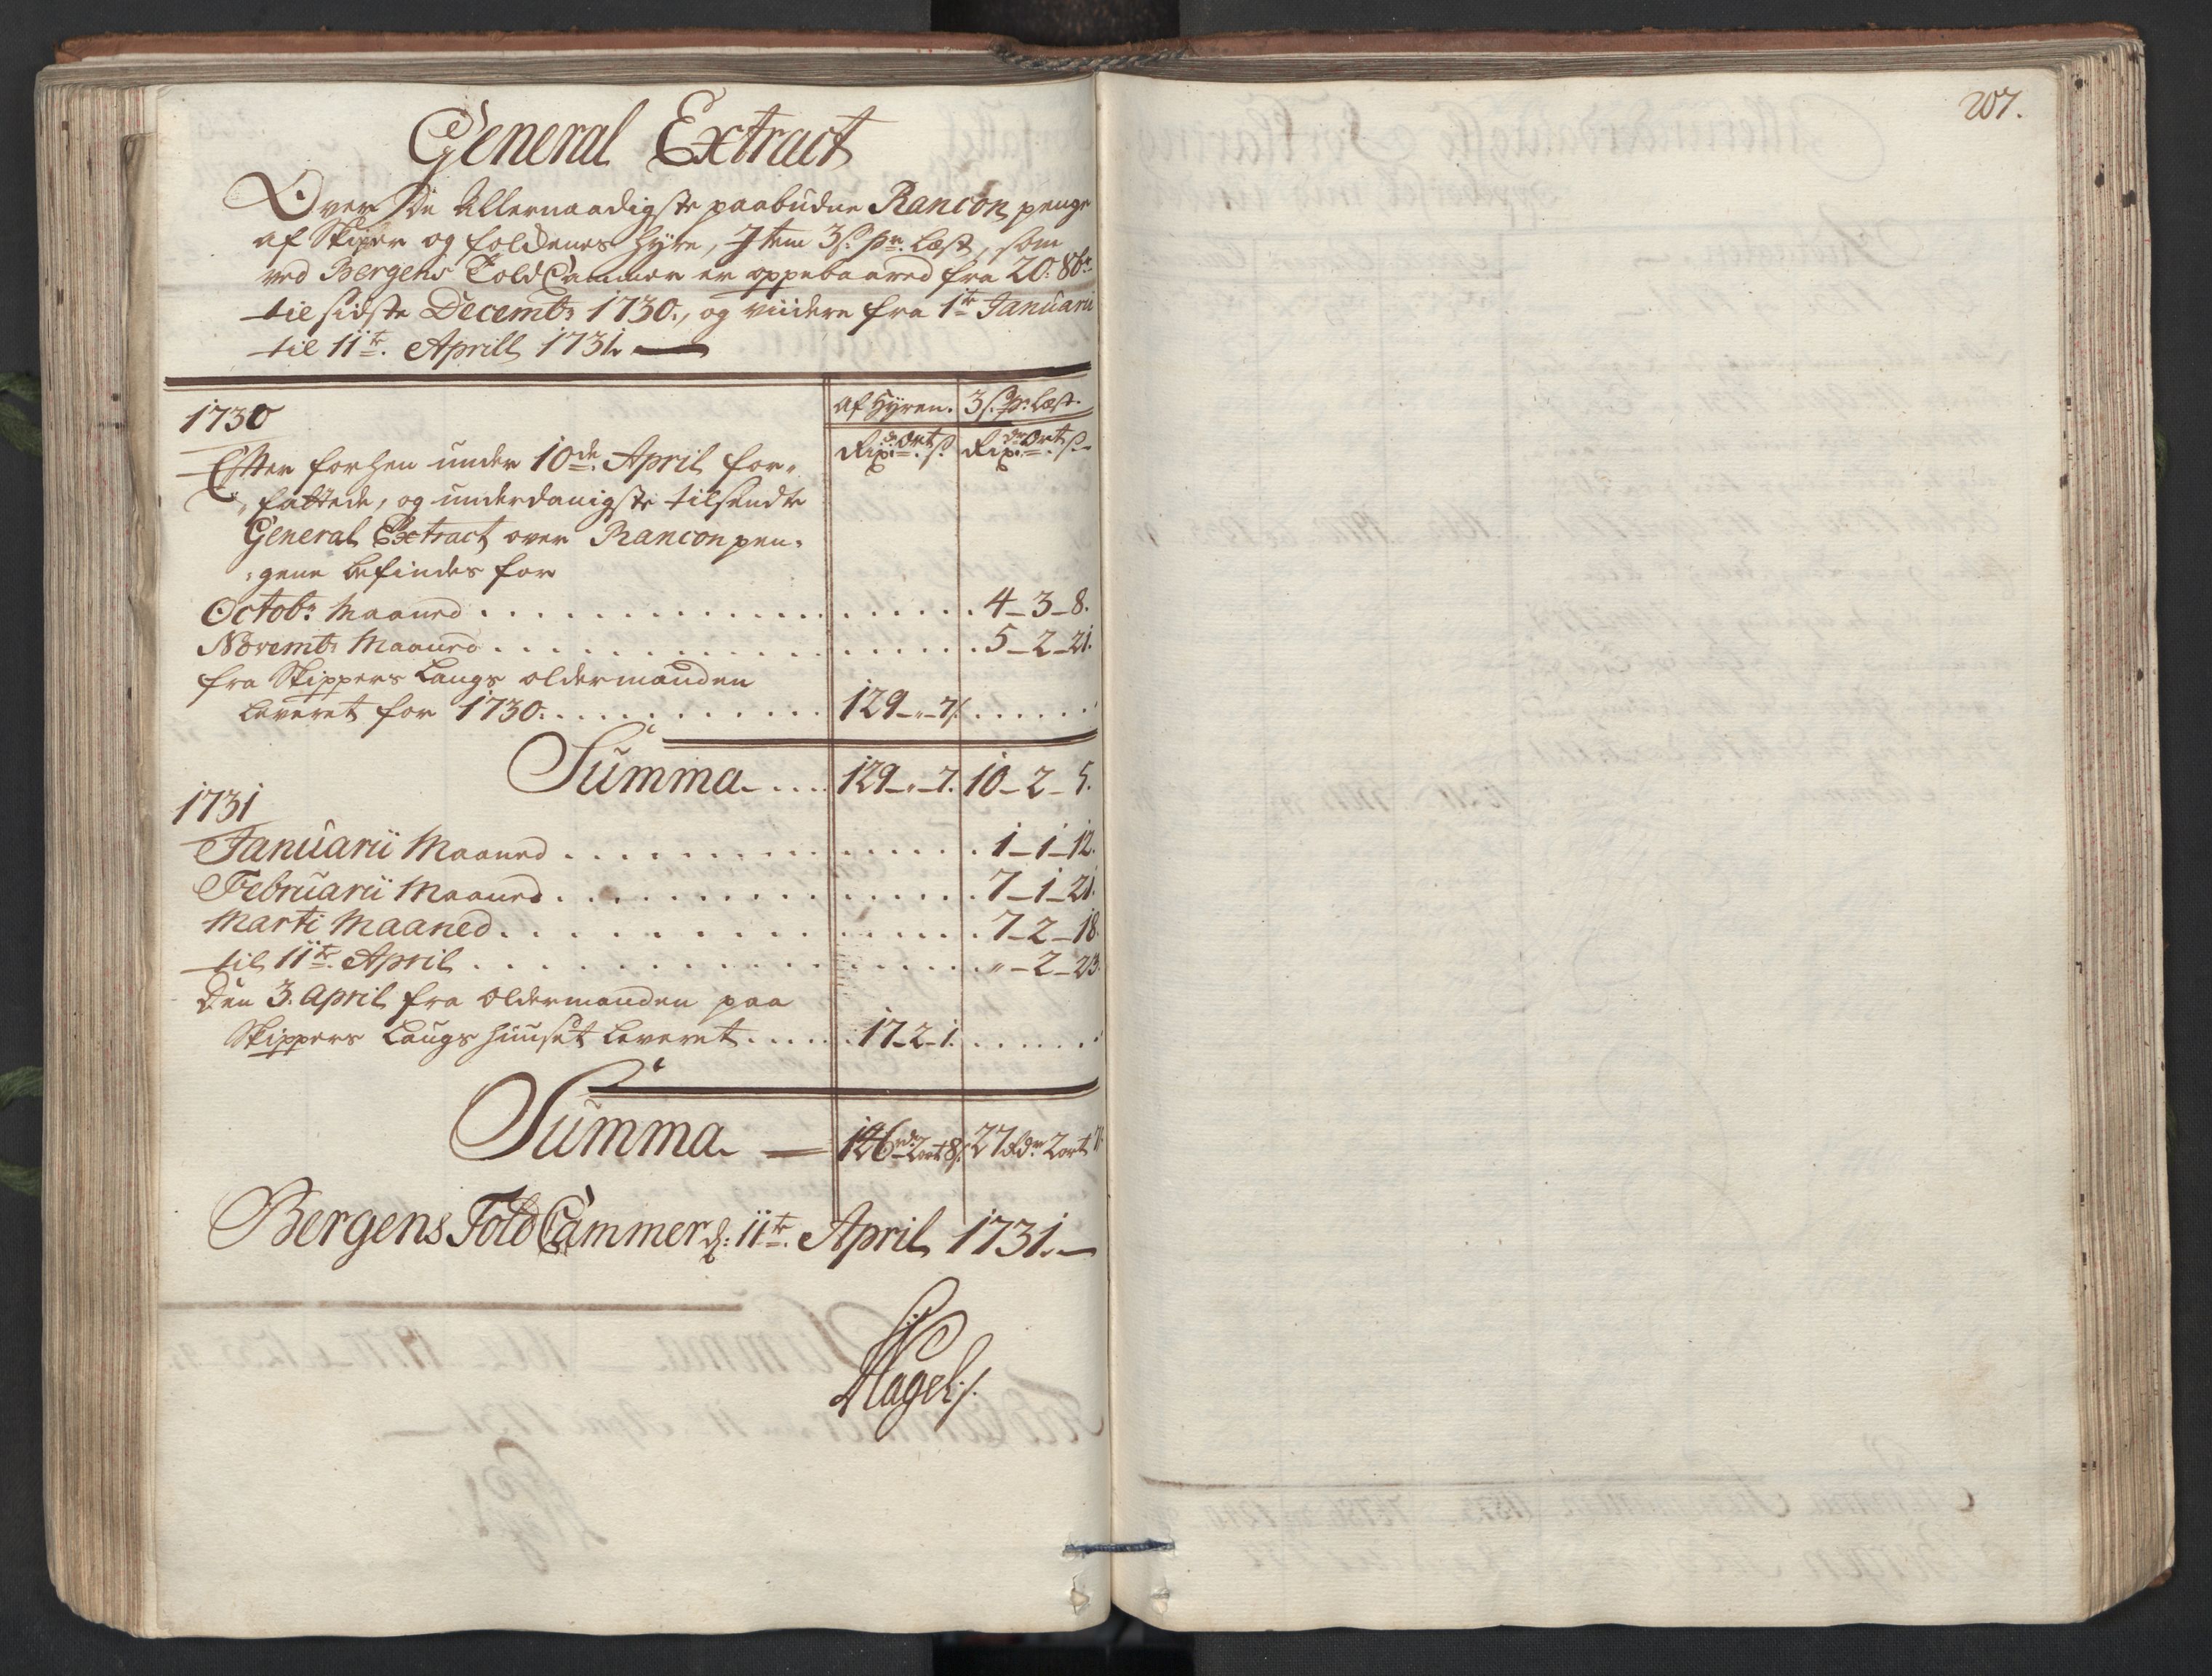 207.
General Extract
Over De Allernaadigste paabudne Rancon penge
af Skiper og folckenes hyre, Item 3 s. pr. Læst, som
ved Bergens Told Cammer er oppebaared fra 20: 8br.
til sidste Decembr 1730., og viidere fra 1te Januarii
til 11te. Aprill 1731.
1730
af Hyren. 3 s. pr. Læst.
Rixdr. ort s. Rixdr. ort s.
Efter forhen under 10de. April for„
„fattede, og underdanigste tilsendte
General Extract over Rancon pen„
„gene befindes for
Octobr. Maaned . . . 4 _ 3 _ 8.
Novembr Maaned . . . 5 _ 2 _ 21.
fra Skippers Laugs oldermanden
leveret for 1730. . . . 129 _ „ _ 7 s. . . .
Summa . . . 129 _ „ _ 7. 10 _ 2 _ 5.
1731
Januarii Maaned . . . 1 _ 1 _ 12.
Februarii Maaned . . . 7 _ 1 _ 21.
Marti Maaned . . . 7 _ 2 _ 18.
til 11te. April . . . „ _ 2 _ 23.
Den 3. April fra Oldermanden paa
Skippers Laugs Huuset leveret . . . 17 _ 2 _ 1. . . .
Summa _ 146 rdr 2 ort 8 s. 27 Rdr 2 ort 7
Bergens Told Cammer d: 11te. April 1731.
Hagel